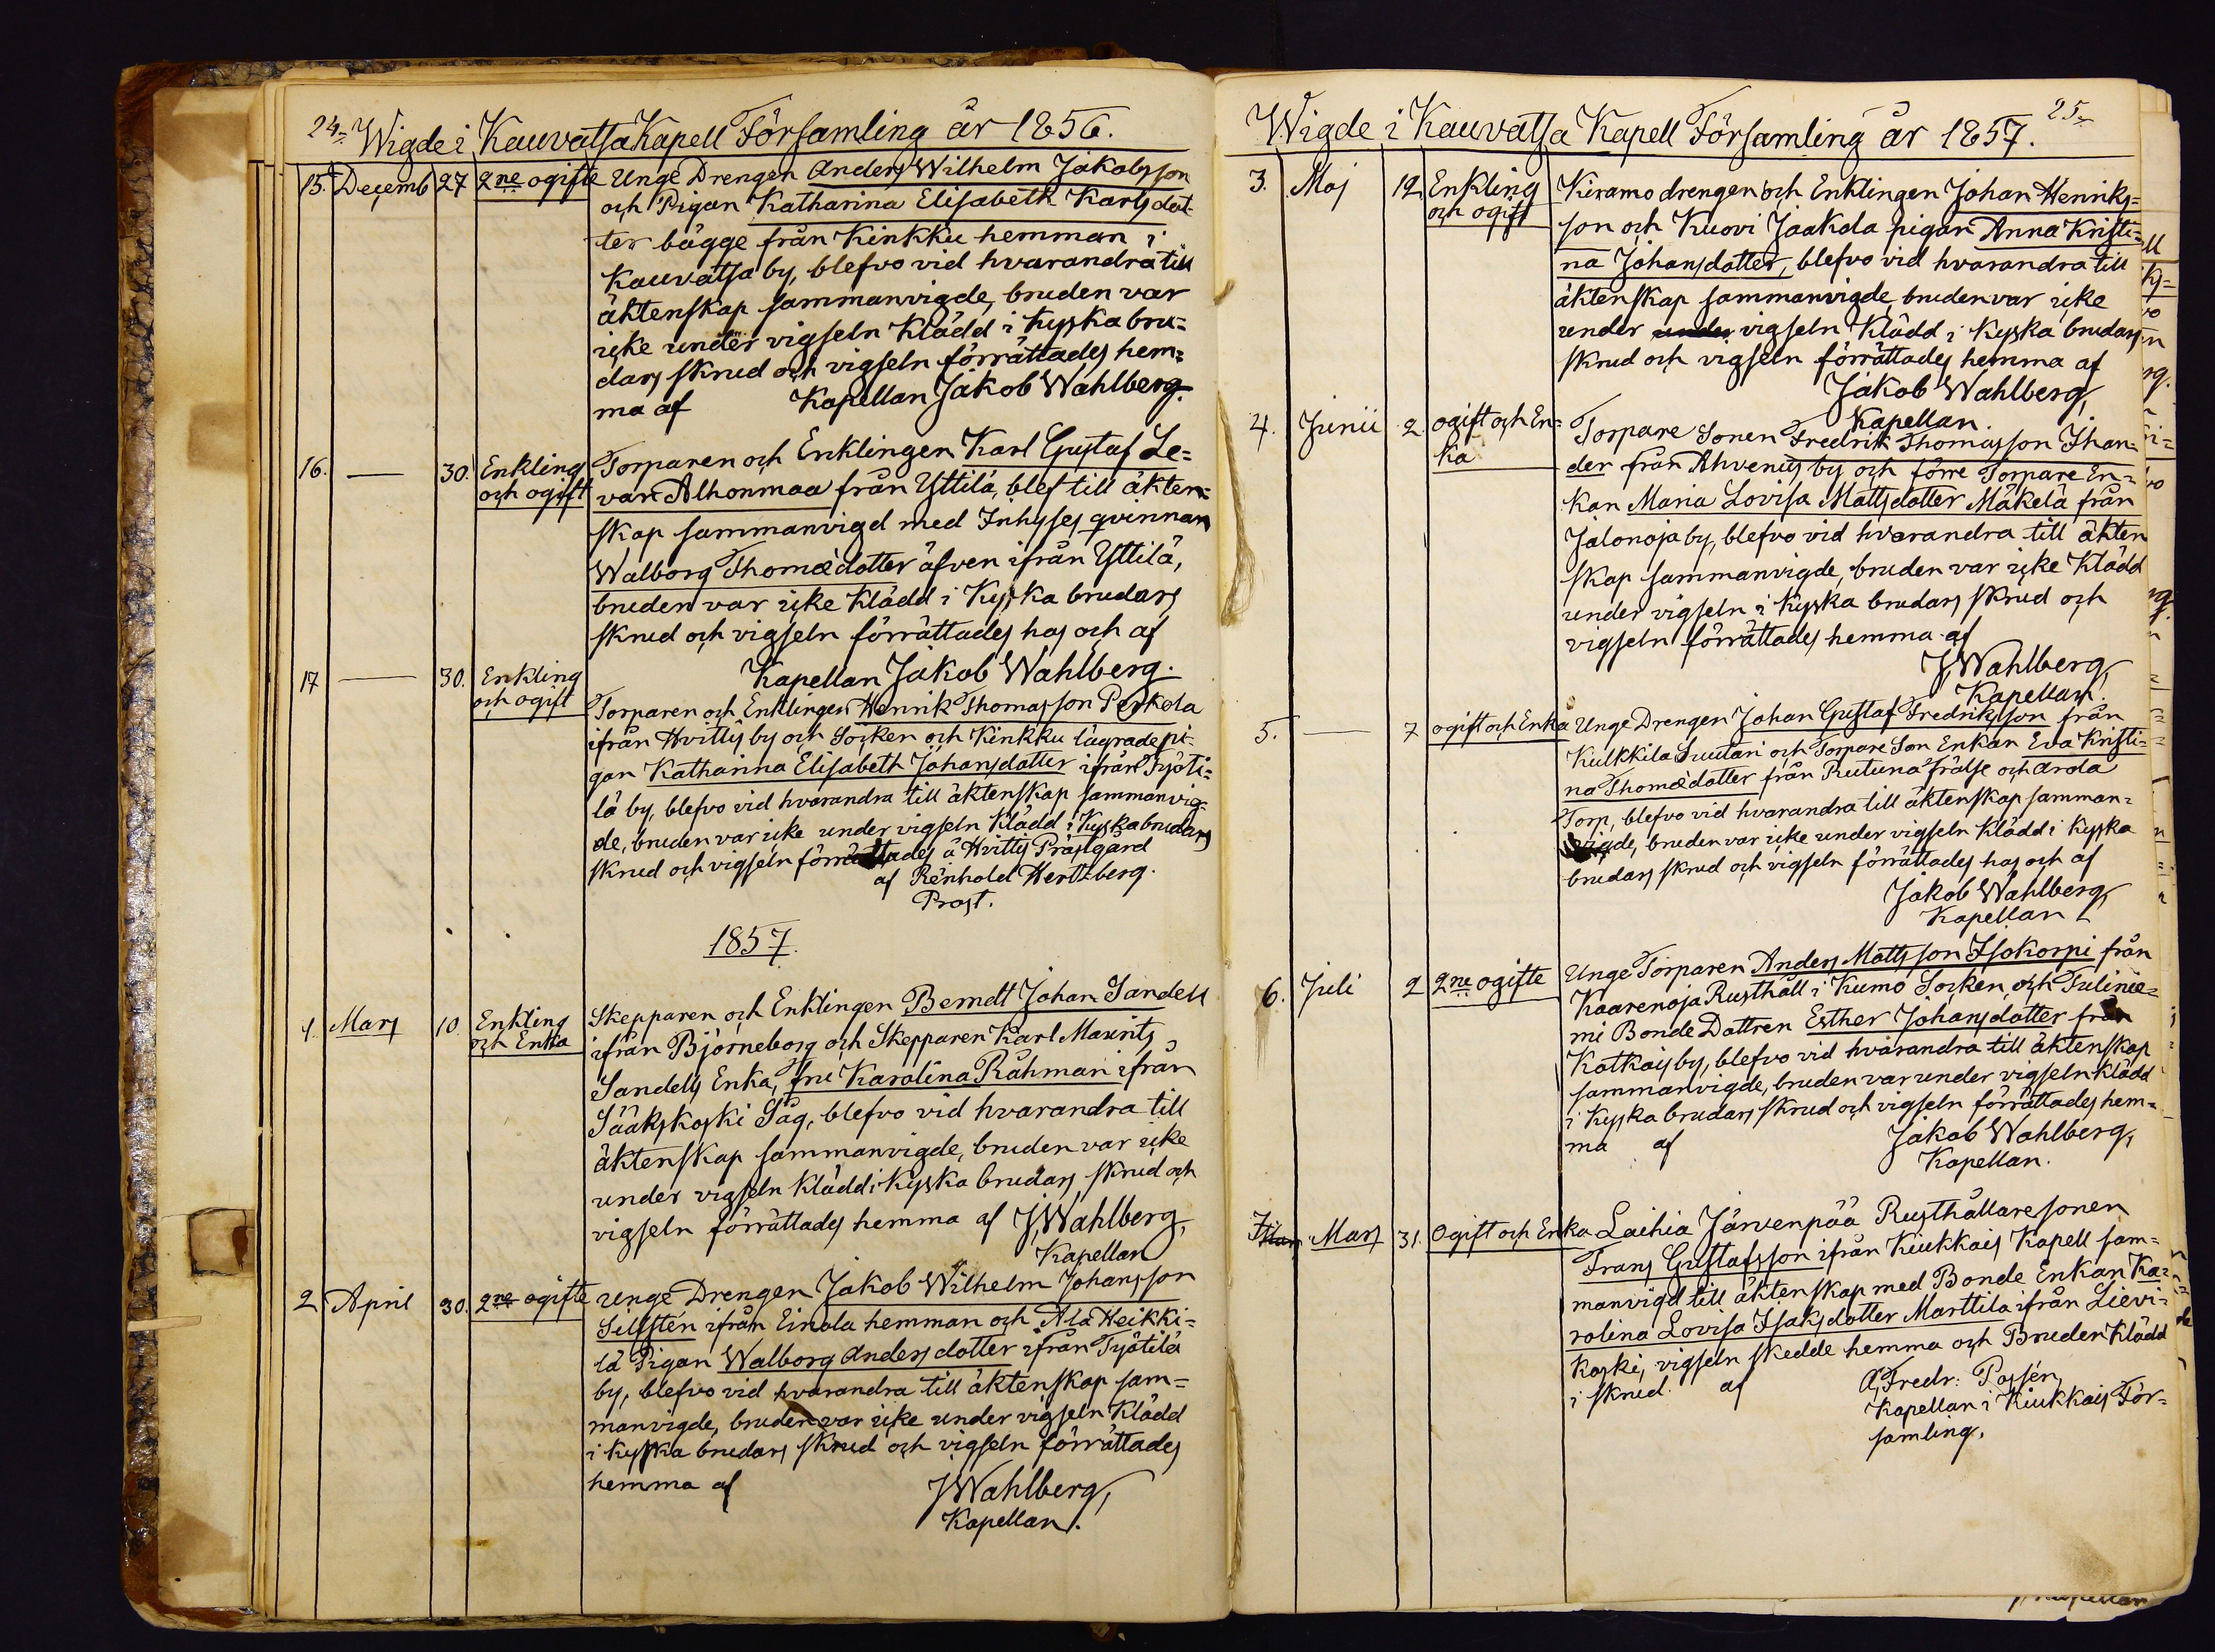 24. Wigde i Kauvatsa Kapell Församling år 1856.
15. Decemb 27 2ne ogifte Unge Drengen Anders Wilhelm Jakobsson
och Pigan Katharina Elisabeth Karlsdot-
ter bägge från Kinkku hemman i
Kauvatsa by, blefvo vid hvarandra till
äktenskap sammanvigde, bruden var
icke under vigseln klädd i kyska bru=
dars skrud och vigseln förrättades hem=
ma af Kapellan Jakob Wahlberg.
16. — 30. Enkling och ogift Torparen och Enklingen Karl Gustaf Le=
van Alhonmaa från Yttilä, blef till äkten=
skap sammanvigd med Inhyses qvinnan
Walborg Thomædotter äfven ifrån Yttilä,
bruden var icke klädd i Kyska brudars
skrud och vigseln förrättades hos och af
Kapellan Jakob Wahlberg.
17 — 30. Enkling och ogift
Torparen och Enklingen Henrik Thomasson Perkola
ifrån Hvittis by och Socken och Kinkku lägrade pi-
gan Katharina Elisabeth Johansdotter ifrån Työti=
lä by, blefvo vid hvarandra till äktenskap sammanvig-
de, bruden var icke under vigseln klädd i Kyska brudars
skrud och vigseln förrättades å Hvittis Prästgård
af Renhold Hertzberg.
Prost.
1857.
1. Mars 10. Enkling och Enka Skepparen och Enklingen Berndt Johan Sandell
ifrån Björneborg och Skepparen Karl Maurits
Sandells Enka, fru Karolina Råhman ifrån
Sääkskoski Såg, blefvo vid hvarandra till
äktenskap sammanvigde, bruden var icke
under vigseln klädd i Kyska brudars skrud och
vigseln förrättades hemma af J. Wahlberg,
Kapellan
2 April 30. 2ne ogifte Unge Drengen Jakob Wilhelm Johansson
Sillsten ifrån Einola hemman och Ala Heikki=
lä Pigan Walborg Andersdotter ifrån Työtilä
by, blefvo vid hvarandra till äktenskap sam=
manvigde, bruden var icke under vigseln klädd
i kyska brudars skrud och vigseln förrättades
hemma af J Wahlberg,
Kapellan.
Wigde i Kauvatsa Kapell Församling år 1857. 25.
3. Maj 12 Enkling och ogift Kiramo drengen och Enklingen Johan Henriks=
son och Kuovi Jaakola pigan Anna Kristi=
na Johansdotter, blefvo vid hvarandra till
äktenskap sammanvigde bruden var icke
under under vigseln klädd i Kyska brudars
skrud och vigseln förrättades hemma af
Jakob Wahlberg,
Kapellan.
4. Junii 2. ogift och En-ka Torpare Sonen Fredrik Thomasson Ihan-
der från Ahvenus by och förre Torpare En-
kan Maria Lovisa Mattsdotter Mäkelä från
Jalonoja by, blefvo vid hvarandra till äkten
skap sammanvigde, bruden var icke klädd
under vigseln i kyska brudars skrud och
vigseln förrättades hemma af
J. Wahlberg,
Kapellan.
5. — 7 ogift och Enka Unge Drengen Johan Gustaf Fredriksson från
Kulkkila Suutari och Torpare Son Enkan Eva Kristi=
na Thomædotter från Rutuna frälse och Arola
Torp, blefvo vid hvarandra till äktenskap samman=
vigde, bruden var icke under vigseln klädd i kyska
brudars skrud och vigseln förrättades hos och af
Jakob Wahlberg,
Kapellan
6. Juli 2 2ne ogifte Unge Torparen Anders Mattsson Isokorpi från
Kaarenoja Rusthåll i Kumo Socken, och Tulinie=
mi Bonde Dottren Esther Johansdotter från
Katkais by, blefvo vid hvarandra till äktenskap
sammanvigde, bruden var under vigseln klädd
i Kyska brudars skrud och vigseln förrättades hem=
ma af Jakob Wahlberg,
Kapellan.
7. Mars 31. Ogift och Enka Laihia Järvenpää Rusthållaresonen
Frans Gustafsson ifrån Kiukkais Kapell sam=
manvigd till äktenskap med Bonde Enkan Ka=
rolina Lovisa Isaksdotter Marttila ifrån Lievi=
koski, vigseln skedde hemma och Bruden klädd
i skrud. af A, Fredr: Possén,
Kapellan i Kiukkais För=
samling.